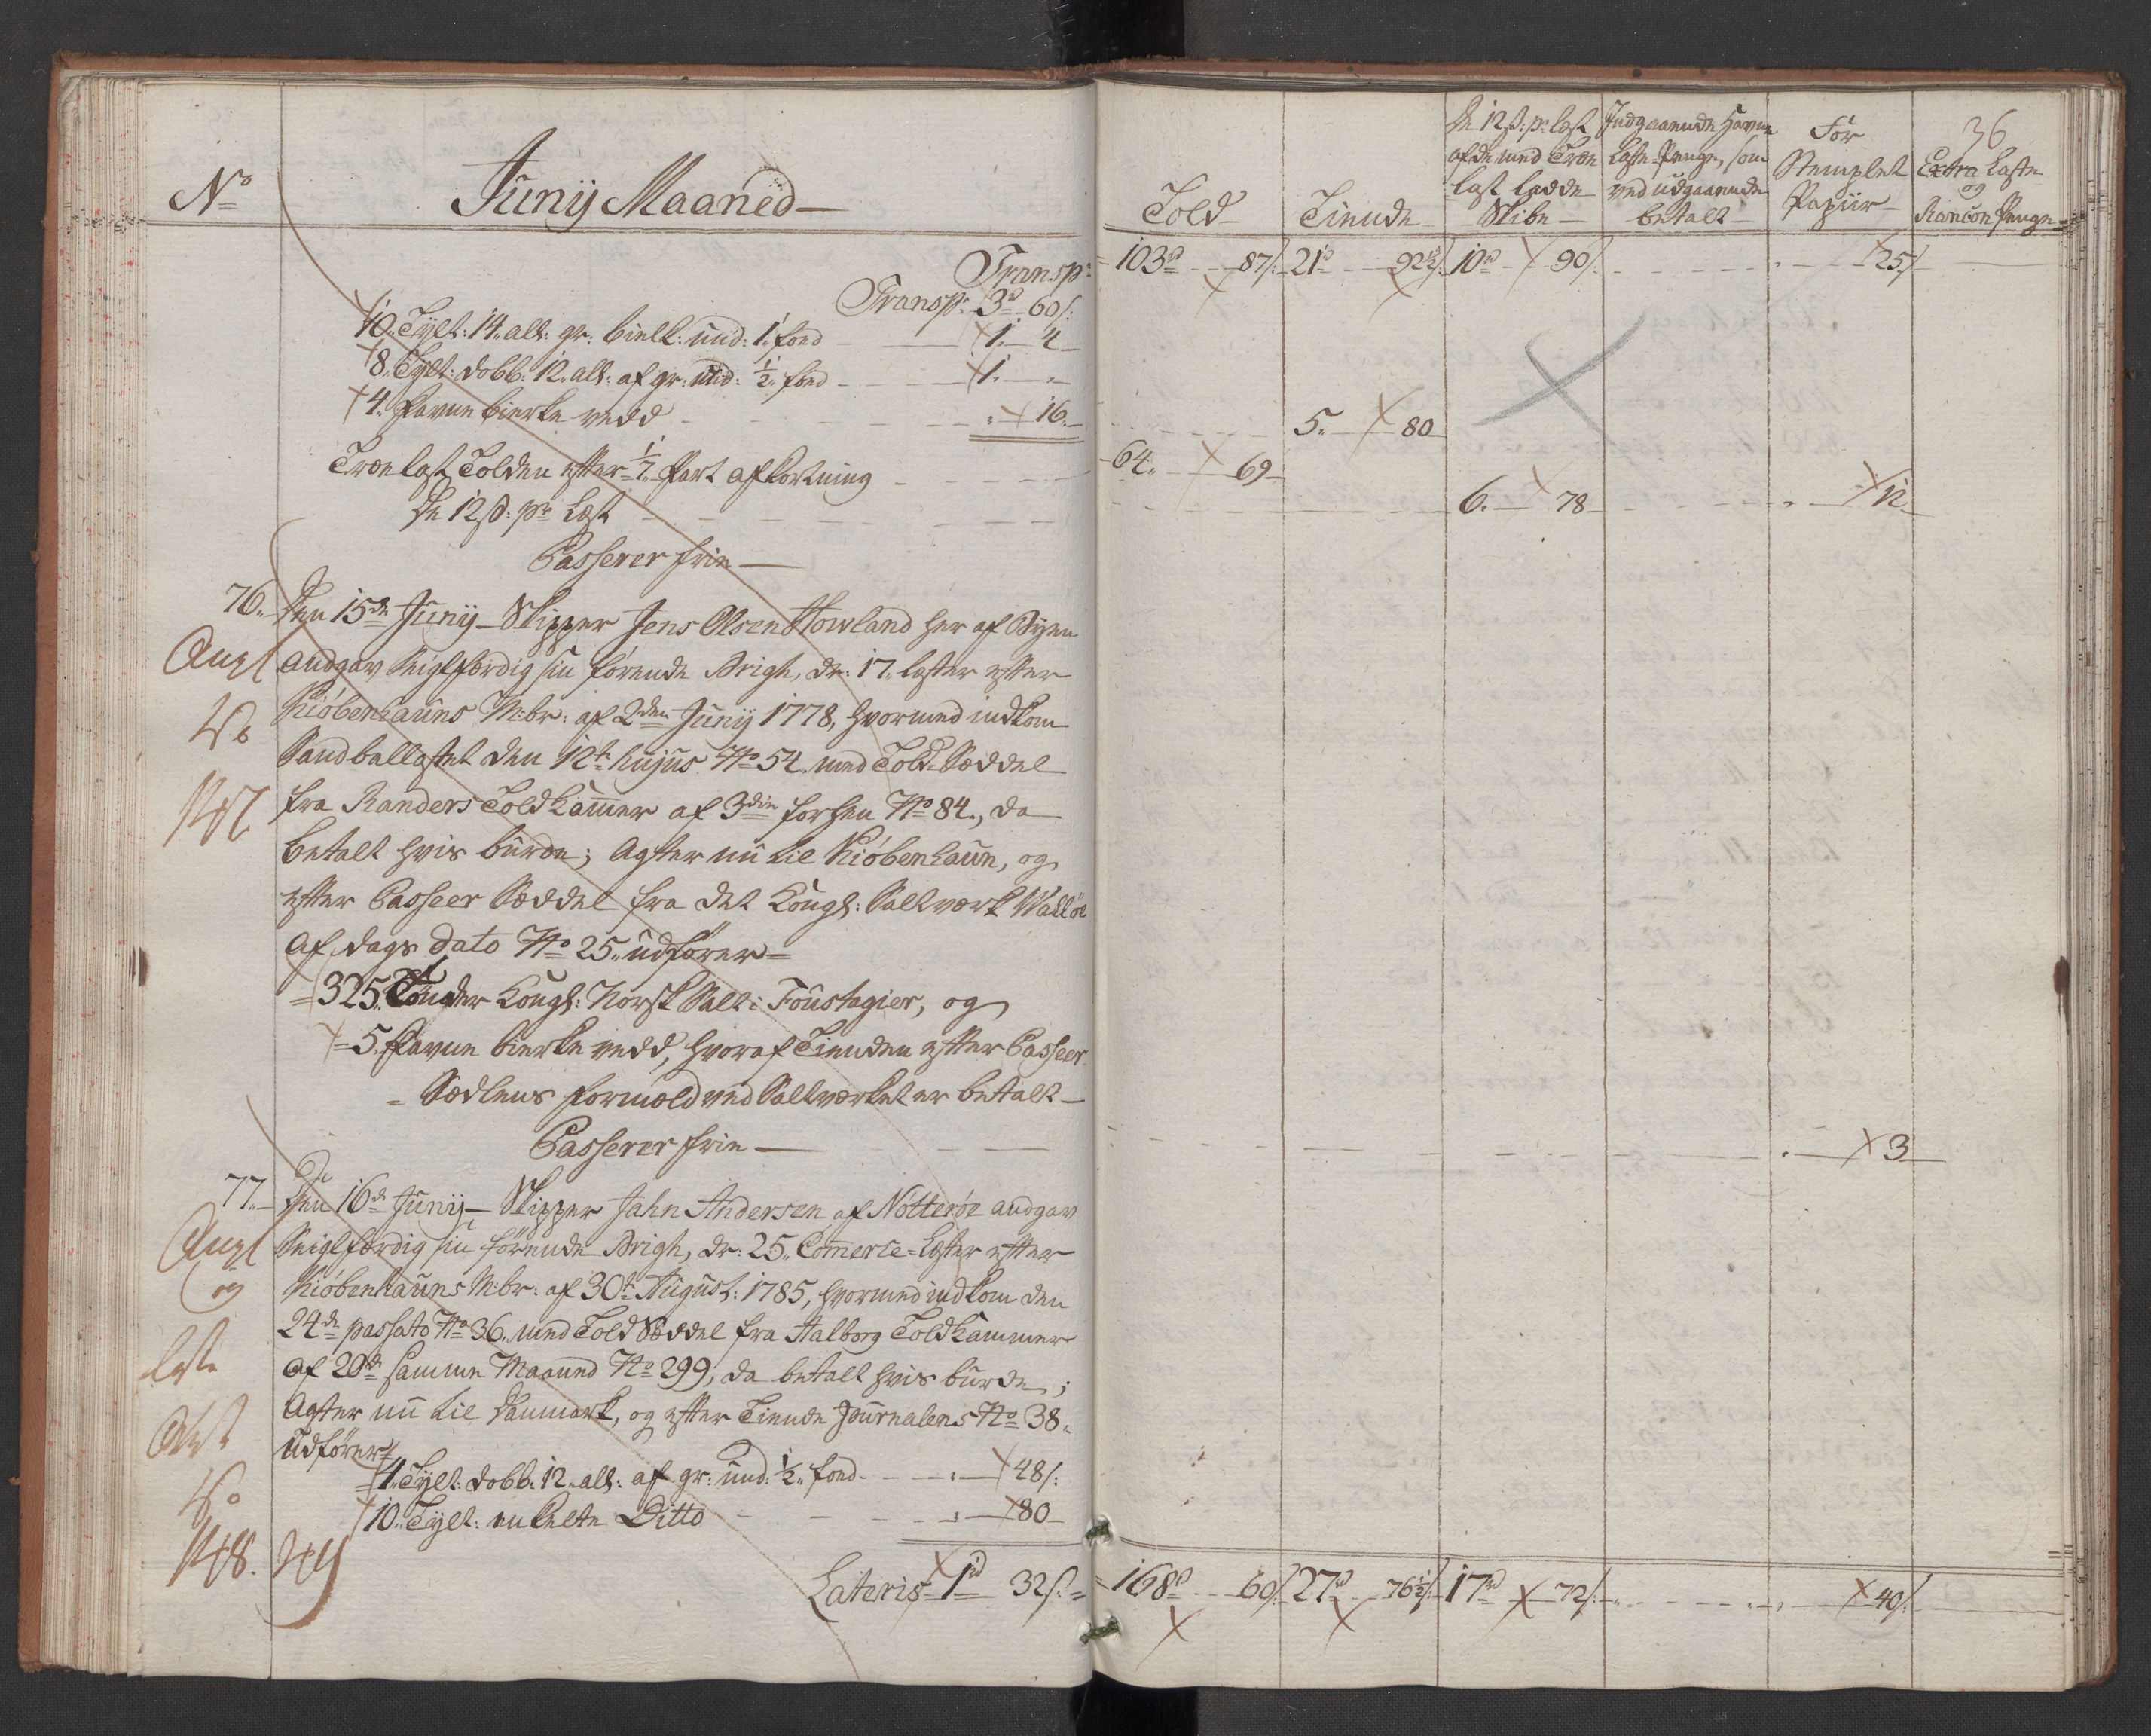 No
Junij Maaned
Transp:
Transp: 3rd 60s:
10. Tylt: 14. all: gr: bielk: und: 1. foed 1. 4
8. Tylt: dobb: 12. all: af gr: und: 1/2 foed 1. "
4. Favne birke vedd " 16.
Trælast Tolden efter 1/7 Part afkortning
De 12s: pr Læst
Passerer frie
76. Den 15de Junij Skipper Jens Olsen Howland her af Byen
Angl andgav Seiglfærdig sin førende Brigh, dr: 17. læster efter
Kiøbenhauns M:br: af 2den Junij 1778, hvormed indkom
Sandballastet den 12te hujus No 54. med Told-Sæddel
147 fra Randers Toldkammer af 3die forhen No 84., da
betalt hvis burde; Agter nu til Kiøbenhaun, og
efter Passeer Sæddel fra det Kongl: Saltværk Walløe
af dags dato No 25. udfører
325. Tønder Kongl: Norsk Salt i Foustagier, og
5. Favne birke vedd, hvoraf Tienden efter Passeer
Sædlens formeld ved Saltværket er betalt
Passerer frie
77. Den 16de Junij Skipper Jahn Andersen af Nøtterøe andgav
Angl Seiglfærdig sin førende Brigh, dr: 25. Commerce-Læster efter
og Kiøbenhauns M:br: af 30te August: 1785, hvormed indkom den
24de passato No 36. med Told Sæddel fra Aalborg Toldkammer
af 20de samme Maaned No 299, da betalt hvis burde;
Agter nu til Danmark, og efter Tiende Journalens No 38.
udfører
4. Tylt: dobb: 12. all: af gr: und: 1/2. foed " 48s:
10. Tylt: enkelte Ditto " 80
148.
Lateris 1rd 32s.
36
Told
Tiende
De 12s: pr læst
af de med Træ
last ladde
Skibe
Indgaaende Havne
Laste-Penge, som
ved udgaaende
betalt
For
Stemplet
Papiir
Extra Laste
og
Rançon Penge
103rd 87s: 21rd 92 1/2s 10rd 90s: 25s
5. 80
64. 69
6. 78 " 12
" 3
168rd 60s: 27rd 76 1/2s: 17rd 72s: 40s: